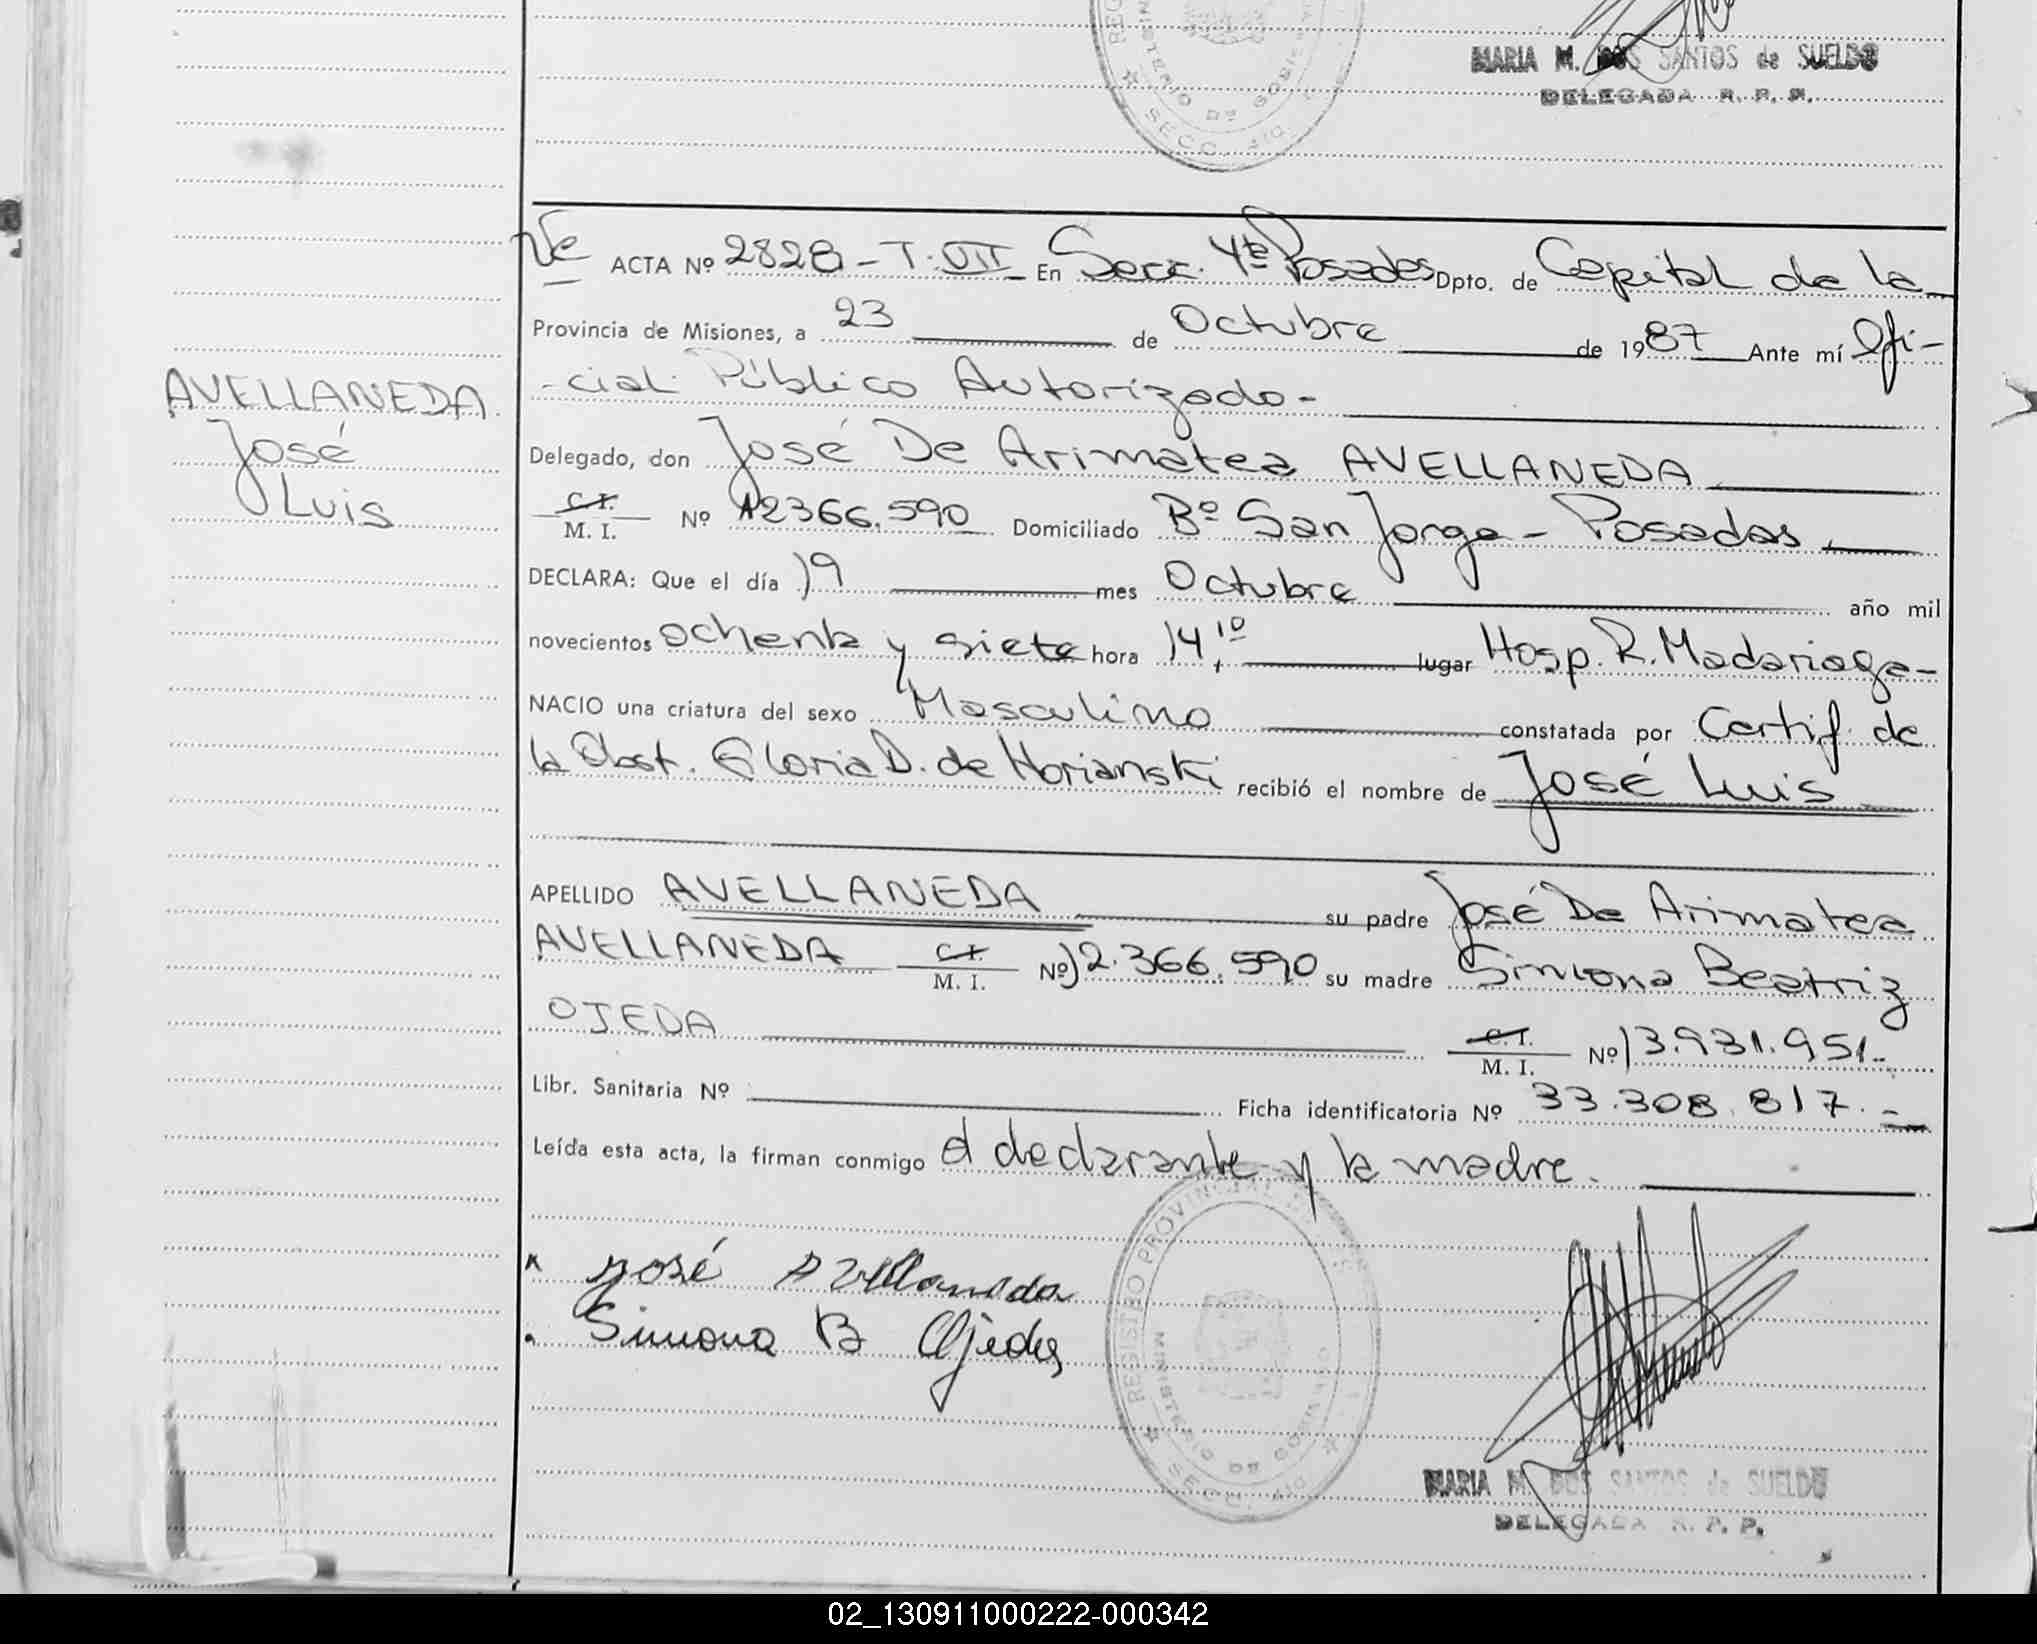 MARIA M. DOS SANTOS de SUELDO
DELEGADA R. P. P.
Ve ACTA Nº 2828 - T. VII - En Secc. 4ta Posadas Dpto. de Capital de la
Provincia de Misiones, a 23 de Octubre de 1987 Ante mí Ofi-
-cial Público Autorizado-
AVELLANEDA
José
Luis
Delegado, don José De Arimatea AVELLANEDA
C.I.
M. I. Nº 12366.590 Domiciliado Bº San Jorge - Posadas
DECLARA: Que el día 19 mes Octubre año mil
novecientos ochenta y siete hora 14,10 lugar Hosp. R. Madariaga-
NACIO una criatura del sexo Masculino constatada por Certif. de
la Obst. Gloria D. de Horianski recibió el nombre de José Luis
APELLIDO AVELLANEDA su padre José De Arimatea
AVELLANEDA C.I. M. I. Nº 12.366.590 su madre Simona Beatriz
OJEDA C.I. M. I. Nº 13.931.951.-
Libr. Sanitaria Nº Ficha identificatoria Nº 33.308.817.-
Leída esta acta, la firman conmigo el declarante y la madre.
José Avellaneda
Simona B Ojeda
REGISTRO PROVINCIAL
MINISTERIO DE GOBIERNO
SECC. 4ta
MARIA M. DOS SANTOS de SUELDO
DELEGADA R. P. P.
02_130911000222-000342